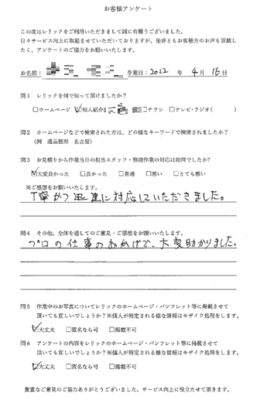 お客様アンケート
この度はレリックをご利用いただきまして誠に有難うございました。
日々サービス向上に取組ませていただいておりますが、是非ともお客様方のお声も頂戴し
たく、アンケートのご協力をお願いいたします。
お名前： 作業日：2022 年 4 月 16 日
問1 レリックを何で知って頂けましたか？
□ホームページ ☑知人紹介( □チラシ □テレビ・ラジオ( )
問2 ホームページなどで検索された方は、どの様なキーワードで検索されましたか？
(例 遺品整理 名古屋)
問3 お見積りから作業当日の担当スタッフ・整理作業の対応は如何でしたか？
☑大変良かった □良かった □普通 □悪い □とても悪い
※ご感想をお願いいたします。
丁寧かつ迅速に対応していただきました。
問4 その他、全体を通してのご意見・ご感想をお願いいたします。
プロの仕事のおかげで、大変助かりました。
問5 作業中のお写真についてレリックのホームページ・パンフレット等に掲載させて
頂いても宜しいでしょうか？※個人が特定される様な情報はモザイク処理をします。
☑大丈夫 □匿名なら可 □掲載不可
問6 アンケートの内容をレリックのホームページ・パンフレット等に掲載させて
頂いても宜しいでしょうか？※個人が特定される様な情報はモザイク処理をします。
☑大丈夫 □匿名なら可 □掲載不可
貴重なご意見のご協力ありがとうございました。サービス向上に役立たせて頂きます。